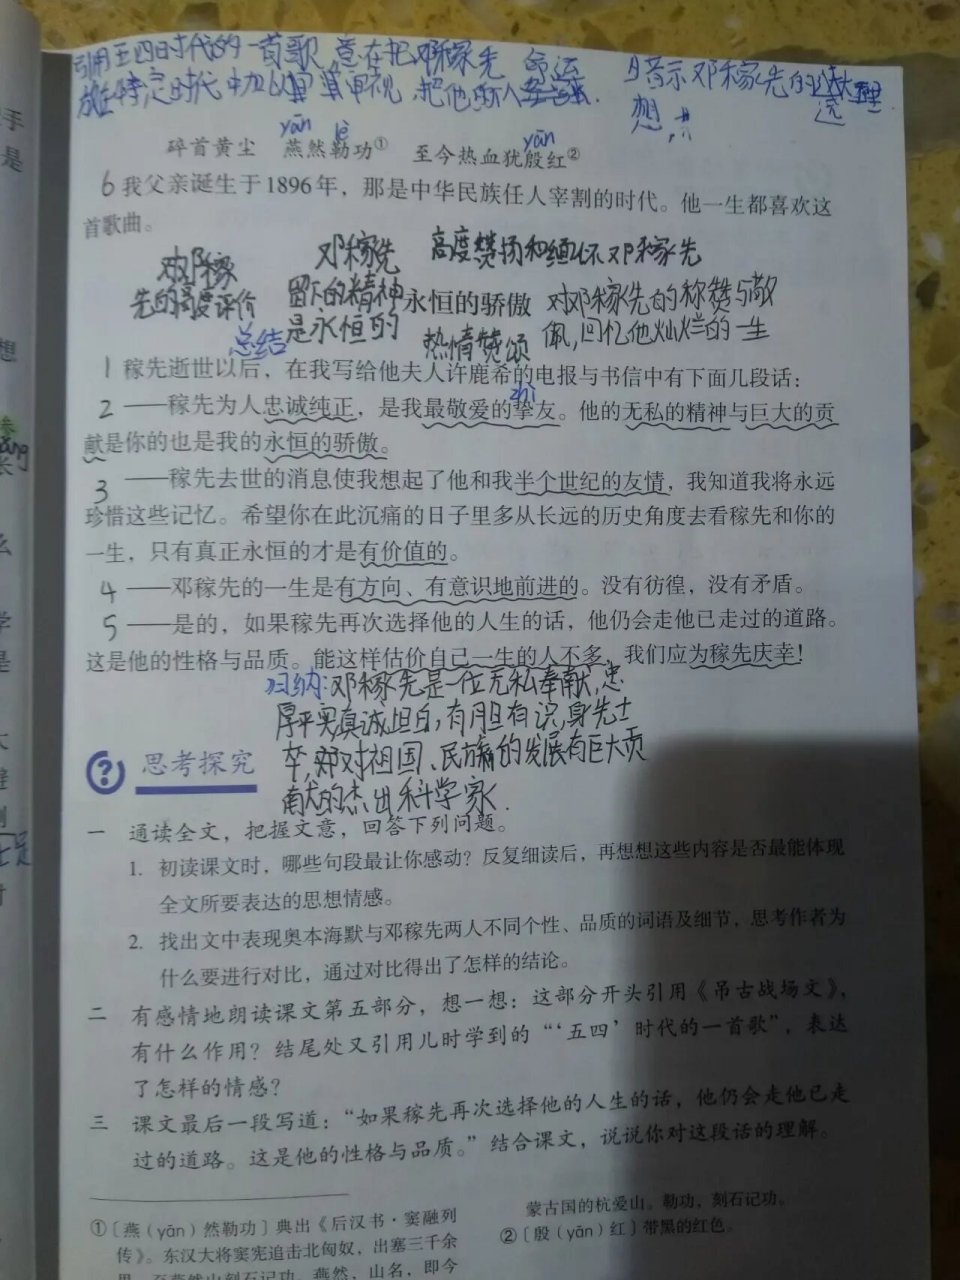 引用五四时代的一首歌,意在把邓稼先 命运
放在特定时代中加以审视,把他纳入
暗示邓稼先的远大理
想,
yān lè yān
碎首黄尘 燕然勒功① 至今热血犹殷红②
6 我父亲诞生于1896年,那是中华民族任人宰割的时代。他一生都喜欢这
首歌曲。
对邓稼
先的高度评价
邓稼先
留下的精神
是永恒的
高度赞扬和缅怀邓稼先
永恒的骄傲
热情赞颂
对邓稼先的称赞与敬
佩,回忆他灿烂的一生
总结
1 稼先逝世以后,在我写给他夫人许鹿希的电报与书信中有下面几段话:
zhì
2 ——稼先为人忠诚纯正,是我最敬爱的挚友。他的无私的精神与巨大的贡
献是你的也是我的永恒的骄傲。
3 ——稼先去世的消息使我想起了他和我半个世纪的友情,我知道我将永远
珍惜这些记忆。希望你在此沉痛的日子里多从长远的历史角度去看稼先和你的
一生,只有真正永恒的才是有价值的。
4 ——邓稼先的一生是有方向、有意识地前进的。没有彷徨,没有矛盾。
5 ——是的,如果稼先再次选择他的人生的话,他仍会走他已走过的道路。
这是他的性格与品质。能这样估价自己一生的人不多,我们应为稼先庆幸!
归纳:邓稼先是一位无私奉献,忠
厚平实,真诚坦白,有胆有识,身先士
卒,对祖国、民族的发展有巨大贡
献的杰出科学家.
思考探究
一 通读全文,把握文意,回答下列问题。
1. 初读课文时,哪些句段最让你感动?反复细读后,再想想这些内容是否最能体现
全文所要表达的思想情感。
2. 找出文中表现奥本海默与邓稼先两人不同个性、品质的词语及细节,思考作者为
什么要进行对比,通过对比得出了怎样的结论。
二 有感情地朗读课文第五部分,想一想:这部分开头引用《吊古战场文》,
有什么作用?结尾处又引用儿时学到的“‘五四’时代的一首歌”,表达
了怎样的情感?
三 课文最后一段写道:“如果稼先再次选择他的人生的话,他仍会走他已走
过的道路。这是他的性格与品质。”结合课文,说说你对这段话的理解。
①〔燕(yān)然勒功〕典出《后汉书·窦融列
传》。东汉大将窦宪追击北匈奴,出塞三千余
里,至燕然山刻石记功。燕然,山名,即今
蒙古国的杭爱山。勒功,刻石记功。
②〔殷(yān)红〕带黑的红色。